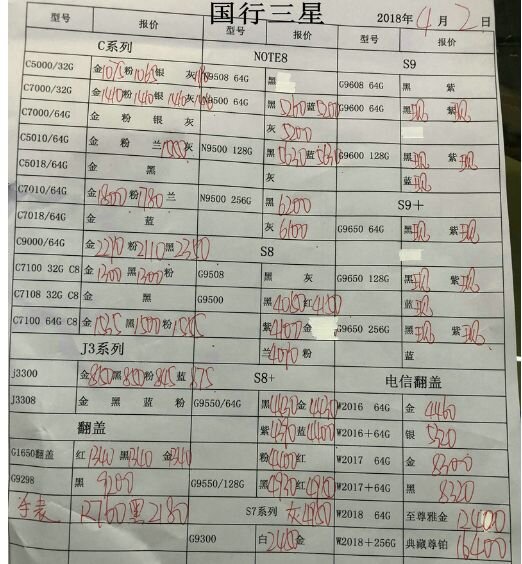 国行三星
2018年4月2日
型号 报价 型号 报价 型号 报价
C系列 NOTE8 S9
C5000/32G 金1075粉1065银 灰 N9508 64G 黑 G9608 64G 黑 紫
C7000/32G 金1410粉1410银1410灰 N9500 64G 黑5260蓝5200 G9600 64G 黑现 紫现
C7000/64G 金 粉 银 灰 灰5200
C5010/64G 金 粉 兰1550灰 N9500 128G 黑5330蓝5330 G9600 128G 黑现 紫现
C5018/64G 金 黑 灰 蓝现
C7010/64G 金1800粉1780兰 N9500 256G 黑6200 S9+
C7018/64G 金 蓝 灰6100 G9650 64G 黑现 紫现
C9000/64G 金2270粉2110黑2380 S8
C7100 32G C8 金1300黑1300粉 G9508 黑 灰 G9650 128G 黑现 紫现
C7108 32G C8 金 黑 G9500 黑4050红4150 蓝现
C7100 64G C8 金1565黑1500粉 紫4100金 G9650 256G 黑现 紫现
J3系列 兰4070粉 蓝
j3300 金850黑850粉845蓝875 S8+ 电信翻盖
J3308 金 黑 蓝 粉 G9550/64G 黑4430金4430 W2016 64G 金 4460
翻盖 紫4390蓝4400 W2016+64G 银 5320
G1650翻盖 红1340黑1340金1340 粉4400红 W2017 64G 金 8300
G9298 黑 9200 G9550/128G 黑4930红4960 W2017+64G 黑 8320
2160黑2180 S7系列 灰4950 W2018 64G 至尊雅金12400
G9300 白2450金 W2018+256G 典藏尊铂16400